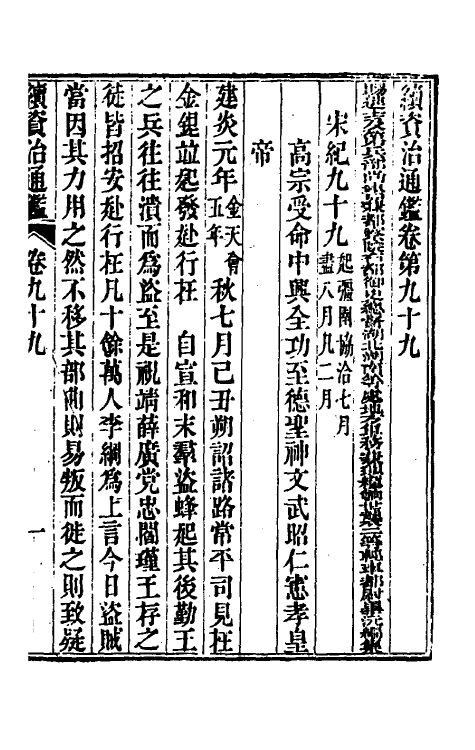 續資治通鑑卷第九十九
宋紀九十九 起彊圉協洽七月盡八月凡二月
高宗受命中興全功至德聖神文武昭仁憲孝皇
帝
建炎元年 金天會五年 秋七月己丑朔詔諸路常平司見在
金銀並起發赴行在 自宣和末羣盜蜂起其後勤王
之兵往往潰而爲盜至是祝靖薛廣党忠閻瑾王存之
徒皆招安赴行在凡十餘萬人李綱爲上言今日盜賊
當因其力用之然不移其部曲則易叛而徙之則致疑
續資治通鑑 卷九十九 一